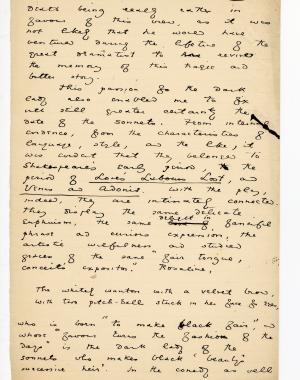 death being really rather in
favour of this view, as it was
not likely that he would have
ventured during the lifetime of the
great dramatist to revive
the memory of this tragic and
bitter story.
This passion for the Dark
lady also enabled me to fix
with still greater certainty the
date of the sonnets. From internal
evidence, from the characteristics of
language, style, and the like, it
was evident that they belonged to
Shakespeare's early period, the
period of Love's Labour's Lost, and
Venus and Adonis. With the play,
indeed, they are intimately connected.
They display the same delicate
Euphuism, the same delight in fanciful
phrase and curious expression, the
artistic wilfulness and studied
graces of the same "fair tongue,
conceit's expositor." Rosaline,
The whitely wanton with a velvet brow,
With two pitch-balls stuck in her face for eyes,
who is born "to make black fair", and
whose "favour turns the fashion of the
days" is the Dark lady of the
sonnets who makes black "beauty's
successive heir". In the comedy as well